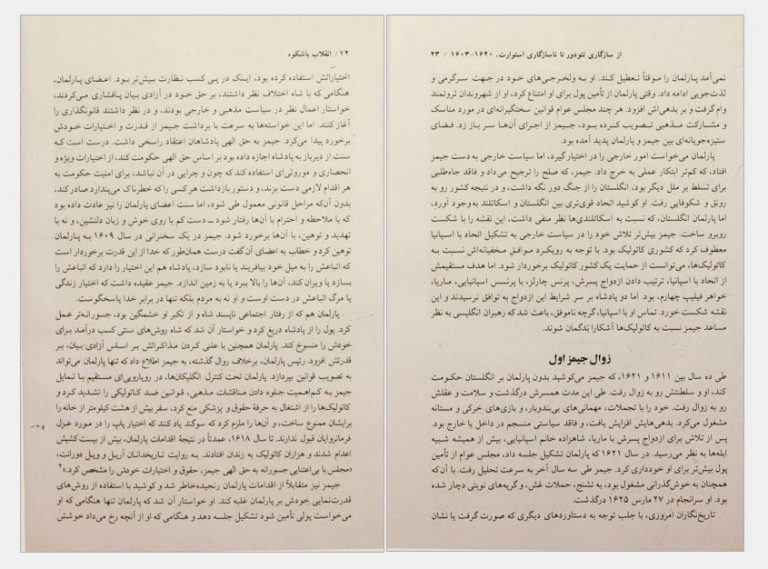 ۱۲ / انقلاب باشکوه
اختیاراتش استفاده کرده بود، اینک در پی کسب نظارت بیش‌تر بود. اعضای پارلمان،
هنگامی که با شاه اختلاف نظر داشتند، بر حق خود در آزادی بیان پافشاری می‌کردند،
خواستار اعمال نظر در سیاست مذهبی و خارجی بودند، و در نظر داشتند قانونگذاری را
آغاز کنند. اما این خواسته‌ها به سرعت با برداشت جیمز از قدرت و اختیارات خودش
برخورد پیدا می‌کرد. جیمز به حق الهی پادشاهان اعتقاد راسخی داشت. درست است که
سنت از دیرباز به پادشاه اجازه داده بود بر اساس حق الهی حکومت کند، از اختیارات ویژه و
انحصاری و موروثی‌ای استفاده کند که چون و چرایی در آن نباشد، برای امنیت حکومت به
هر اقدام لازمی دست بزند، و دستور بازداشت هرکسی را که خطرناک می‌پندارد صادر کند،
بدون آن‌که مراحل قانونی معمول طی شود، اما سنت اعضای پارلمان را نیز عادت داده بود
که با ملاحظه و احترام با آن‌ها رفتار شود ــ دست کم با روی خوش و زبان دلنشین، و نه با
تهدید و توهین، با آن‌ها برخورد شود. جیمز در یک سخنرانی در سال ۱۶۰۹ به پارلمان
توهین کرد و خطاب به اعضای آن گفت درست همان‌طور که خدا از این قدرت برخوردار است
که اتباعش را به میل خود بیافریند یا نابود سازد، پادشاه هم این اختیار را دارد که اتباعش را
بسازد یا ویران کند، آن‌ها را بالا ببرد یا به زمین اندازد. جیمز عقیده داشت که اختیار زندگی
یا مرگ اتباعش در دست اوست و او نه به مردم بلکه تنها در برابر خدا پاسخگوست.
پارلمان هم که از رفتار اجتماعی ناپسند شاه و از تکبر او خشمگین بود، جسورانه‌تر عمل
کرد. پول را از پادشاه دریغ کرد و خواستار آن شد که شاه روش‌های سنتی کسب درآمد برای
خودش را منسوخ کند. پارلمان همچنین با علنی کردن مذاکراتش بر اساس آزادی بیان، بر
قدرتش افزود. رئیس پارلمان، برخلاف روال گذشته، به جیمز اطلاع داد که تنها پارلمان می‌تواند
به تصویب قوانین بپردازد. پارلمان تحت کنترل انگلیکان‌ها، در رویارویی‌ای مستقیم با تمایل
جیمز به کم‌اهمیت جلوه دادن مناقشات مذهبی، قوانین ضد کاتولیکی را تشدید کرد و
کاتولیک‌ها را از اشتغال به حرفهٔ حقوق و پزشکی منع کرد، سفر بیش از هشت کیلومتر از خانه را
برایشان ممنوع ساخت، و آن‌ها را ملزم کرد که سوگند یاد کنند که اختیار پاپ را در مورد عزل
فرمانروایان قبول ندارند. تا سال ۱۶۱۸، عمدتاً در نتیجهٔ اقدامات پارلمان، بیش از بیست کشیش
اعدام شدند و هزاران کاتولیک به زندان افتادند. به روایت تاریخدانان آریل و ویل دورانت،
«مجلس با بی‌اعتنایی جسورانه به حق الهی جیمز، حقوق و اختیارات خودش را مشخص کرد.»۲
جیمز نیز متقابلاً از اقدامات پارلمان رنجیده‌خاطر شد و کوشید با استفاده از روش‌های
قدرت‌نمایی خودش بر پارلمان غلبه کند. او خواستار آن شد که پارلمان تنها هنگامی که او
می‌خواست پولی تأمین شود تشکیل جلسه دهد و هنگامی که او از آنچه رخ می‌داد خوشش
از سازگاری تئودور تا ناسازگاری استوارت، ۱۶۴۰-۱۶۰۳ / ۲۳
نمی‌آمد پارلمان را موقتاً تعطیل کند. او به ولخرجی‌های خود در جهت سرگرمی و
لذت‌جویی ادامه داد. وقتی پارلمان از تأمین پول برای او امتناع کرد، او از شهروندان ثروتمند
وام گرفت و بر بدهی‌اش افزود. هر چند مجلس عوام قوانین سختگیرانه‌ای در مورد مناسک
و مشارکت مذهبی تصویب کرده بود، جیمز از اجرای آن‌ها سر باز زد. فضای
ستیزه‌جویانه‌ای بین جیمز و پارلمان پدید آمده بود.
پارلمان می‌خواست امور خارجی را در اختیار گیرد، اما سیاست خارجی به دست جیمز
افتاد، که کم‌تر ابتکار عملی به خرج داد. جیمز، که صلح را ترجیح می‌داد و فاقد جاه‌طلبی
برای تسلط بر ملل دیگر بود، انگلستان را از جنگ دور نگه داشت، و در نتیجه کشور رو به
رونق و شکوفایی رفت. او کوشید اتحاد قوی‌تری بین انگلستان و اسکاتلند به‌وجود آورد،
اما پارلمان انگلستان، که نسبت به اسکاتلندی‌ها نظر منفی داشت، این نقشه را با شکست
روبرو ساخت. جیمز بیش‌تر تلاش خود را در سیاست خارجی به تشکیل اتحاد با اسپانیا
معطوف کرد که کشوری کاتولیک بود. با توجه به رویکرد موافقِ مخفیانه‌اش نسبت به
کاتولیک‌ها، می‌توانست از حمایت یک کشور کاتولیک برخوردار شود. اما هدف مستقیمش
از اتحاد با اسپانیا، ترتیب دادن ازدواج پسرش، پرنس چارلز، با پرنسس اسپانیایی، ماریا،
خواهر فیلیپ چهارم، بود. اما دو پادشاه بر سر شرایط این ازدواج به توافق نرسیدند و این
نقشه شکست خورد. تماس او با اسپانیا، گرچه ناموفق، باعث شد که رهبران انگلیسی به نظر
مساعد جیمز نسبت به کاتولیک‌ها آشکارا بدگمان شوند.
زوال جیمز اول
طی ده سال بین ۱۶۱۱ و ۱۶۲۱، که جیمز می‌کوشید بدون پارلمان بر انگلستان حکومت
کند، او و سلطنتش رو به زوال رفت. طی این مدت همسرش درگذشت و سلامت و عقلش
رو به زوال رفت. خود را با تجملات، مهمانی‌های بی‌بندوبار، و بازی‌های خرکی و مستانه
مشغول می‌کرد. بدهی‌هایش افزایش یافت، و فاقد سیاستی منسجم در داخل یا خارج بود.
پس از تلاش برای ازدواج پسرش با ماریا، شاهزاده خانم اسپانیایی، بیش از همیشه شبیه
ابله‌ها به نظر می‌رسید. در سال ۱۶۲۱ که پارلمان تشکیل جلسه داد، مجلس عوام از تأمین
پول بیش‌تر برای او خودداری کرد. جیمز طی سه سال آخر به سرعت تحلیل رفت. با آن‌که
همچنان به خوش‌گذرانی مشغول بود، به تشنج، حملات غش، و گریه‌های نوبتی دچار شده
بود. او سرانجام در ۲۷ مارس ۱۶۲۵ درگذشت.
تاریخ‌نگاران امروزی، با جلب توجه به دستاوردهای دیگری که صورت گرفت یا نشان